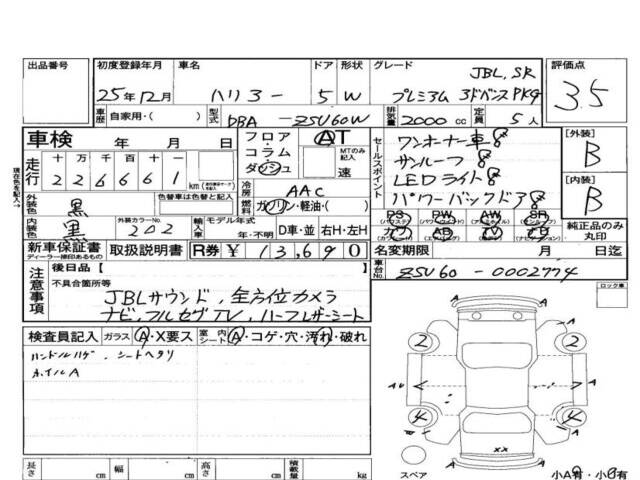 出品番号 初度登録年月 車名 ドア 形状 グレード 評価点
JBL, SR
25年12月 ハリアー 5 W プレミアム アドバンスPKg 3.5
車歴 自家用・( ) 型式 DBA - ZSU60W 排気量 2000 cc 定員 5 人
車検 年 月 日
フロア・コラム・ダッシュ AT 速
MTのみ記入
セールスポイント
ワンオーナー車
サンルーフ
LEDライト
パワーバックドア
[外装] B
[内装] B
走行 十 万 千 百 十 一
226661 km
現在色を記入
外装色 黒 色替車は色替と記入
冷房 AAC
燃料 ガソリン・軽油・( )
内装色 黒 外装カラーNo. 202
輸入車 モデル年式 年・不明 D車・並 右H・左H
PS PW AW SR
カワ AB TV ナビ
純正品のみ丸印
新車保証書 ディーラー捺印あるもの 取扱説明書 R券 ¥ 13,690
名変期限 月 日
車台No. ZSU60 - 0002774
注意事項
後日品【 】
不具合箇所等
JBLサウンド, 全方位カメラ
ナビ, フルセグTV, ハーフレザーシート
ロック車
検査員記入 ガラス A・X要ス 室内シート A・コゲ・穴・汚れ・破れ
ハンドルハゲ, シートヘタリ
ホイルA
A
2 2
A A
4 4
A
XX
スペア 小A有・小U有
長さ cm 幅 cm 高さ cm 積載量 kg